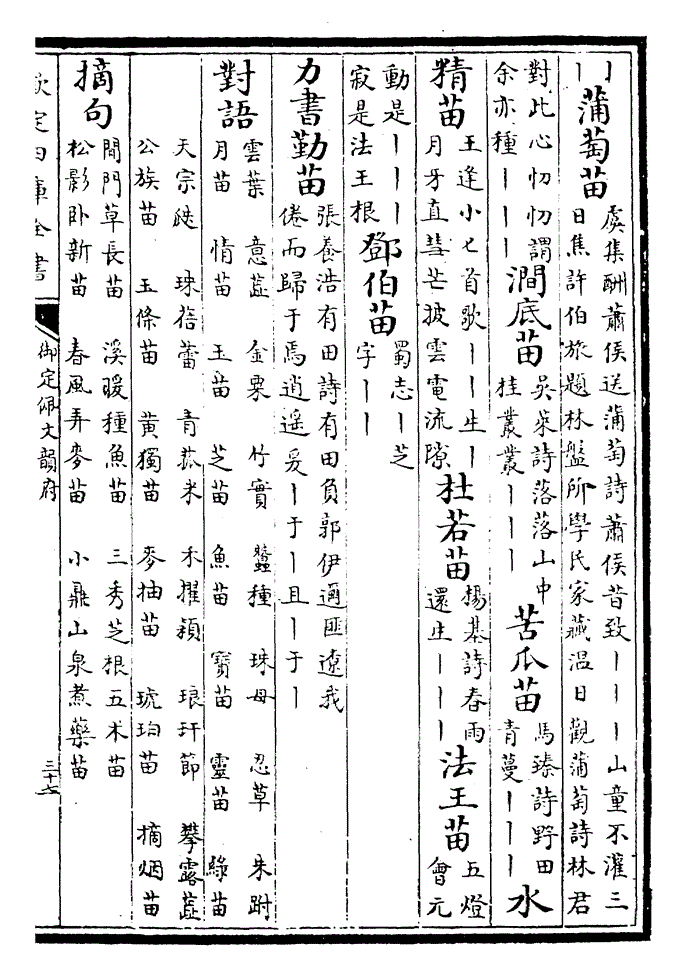 丨
丨
蒲萄苗
虞集酬蕭侯送蒲萄詩蕭侯昔致丨丨丨山童不灌三
日焦許伯旅題林盤所學氏家藏温日觀蒲萄詩林君
對此心忉忉謂
余亦種丨丨丨
澗底苗
吳萊詩落落山中
桂叢叢丨丨丨
苦瓜苗
馬臻詩野田
青蔓丨丨丨
水
精苗
王逢小匕首歌丨丨生丨
月牙直彗芒披雲電流隙
杜若苗
楊基詩春雨
還生丨丨丨
法王苗
五燈
會元
動是丨丨丨
寂是法王根
鄧伯苗
蜀志丨芝
字丨丨
力書勤苗
張養浩有田詩有田負郭伊邇匪遼我
倦而歸于焉逍遥爰丨于丨且丨于丨
對語
雲葉 意蕋 金粟 竹實 蠶種 珠母 忍草 朱跗
月苗 情苗 玉苗 芝苗 魚苗 寶苗 靈苗 綠苗
天宗瓞 珠蓓蕾 青菰米 禾擢穎 琅玕節 攀露蕋
公族苗 玉條苗 黃獨苗 麥抽苗 琥珀苗 摘烟苗
摘句
閒門草長苗 溪暖種魚苗 三秀芝根五术苗
松影卧新苗 春風弄麥苗 小鼎山泉煮藥苗
欽定四庫全書
御定佩文韻府
三十七